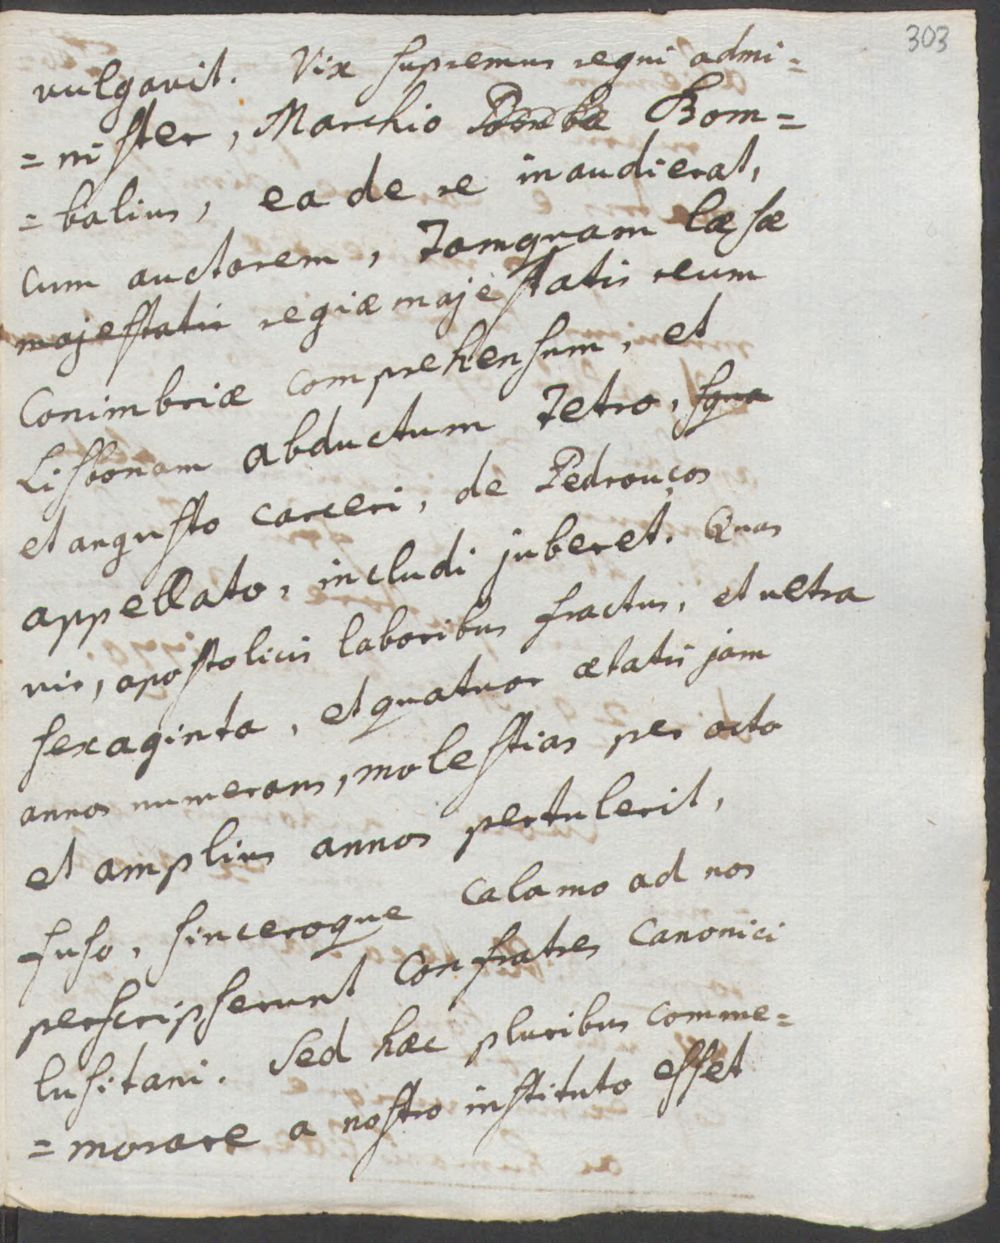 303
vulgavit. Vix supremus regni admi=
=nister, Marchio Bom=
=balius, ea de re inaudierat,
cum auctorem, Tamquam læsæ
majestatis regiæ majestatis reum
Conimbriæ comprehensum, et
Lisbonam abductum Tetro, squa
et angusto carceri, de Pedrouços
appellato, includi juberet. Quas
vir, apostolicis laboribus fractus, et ultra
sexaginta, et quatuor ætatis jam
annos numerans, molestias per octo
et amplius annos pertulerit,
fuso, sinceroque calamo ad nos
perscripserunt Confratres Canonici
lusitani. Sed hæc pluribus comme=
=morare a nostro instituto esset